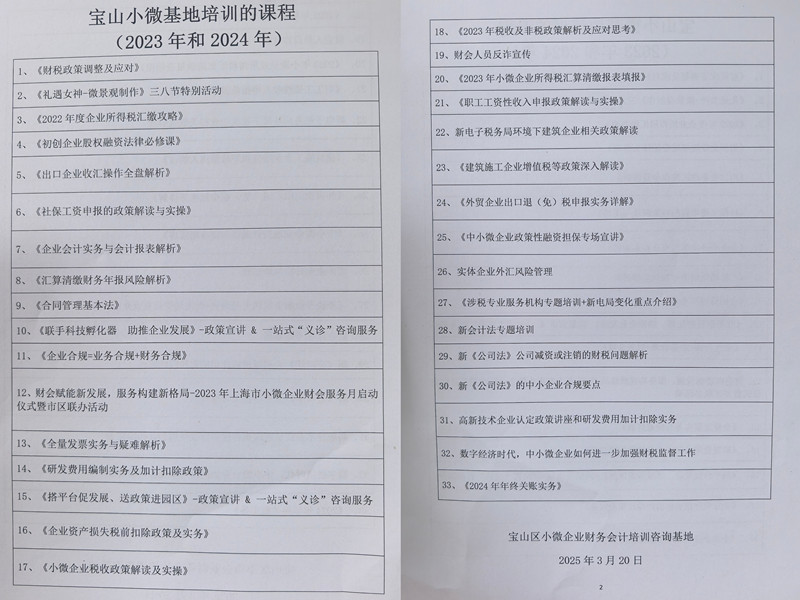 宝山小微基地培训的课程
（2023 年和 2024 年）
1、《财税政策调整及应对》
2、《礼遇女神-微景观制作》三八节特别活动
3、《2022 年度企业所得税汇缴攻略》
4、《初创企业股权融资法律必修课》
5、《出口企业收汇操作全盘解析》
6、《社保工资申报的政策解读与实操》
7、《企业会计实务与会计报表解析》
8、《汇算清缴财务年报风险解析》
9、《合同管理基本法》
10、《联手科技孵化器 助推企业发展》-政策宣讲 & 一站式“义诊”咨询服务
11、《企业合规=业务合规+财务合规》
12、财会赋能新发展，服务构建新格局-2023 年上海市小微企业财会服务月启动
仪式暨市区联办活动
13、《全量发票实务与疑难解析》
14、《研发费用编制实务及加计扣除政策》
15、《搭平台促发展、送政策进园区》-政策宣讲 & 一站式“义诊”咨询服务
16、《企业资产损失税前扣除政策及实务》
17、《小微企业税收政策解读及实操》
18、《2023 年税收及非税政策解析及应对思考》
19、财会人员反诈宣传
20、《2023 年小微企业所得税汇算清缴报表填报》
21、《职工工资性收入申报政策解读与实操》
22、新电子税务局环境下建筑企业相关政策解读
23、《建筑施工企业增值税等政策深入解读》
24、《外贸企业出口退（免）税申报实务详解》
25、《中小微企业政策性融资担保专场宣讲》
26、实体企业外汇风险管理
27、《涉税专业服务机构专题培训+新电局变化重点介绍》
28、新会计法专题培训
29、新《公司法》公司减资或注销的财税问题解析
30、新《公司法》的中小企业合规要点
31、高新技术企业认定政策讲座和研发费用加计扣除实务
32、数字经济时代，中小微企业如何进一步加强财税监督工作
33、《2024 年年终关账实务》
宝山区小微企业财务会计培训咨询基地
2025 年 3 月 20 日
2